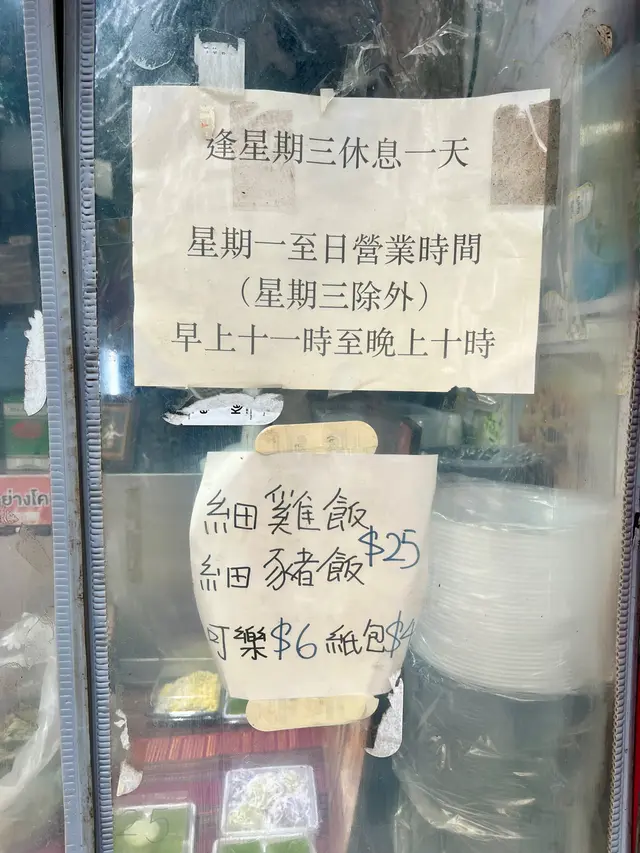 逢星期三休息一天
星期一至日營業時間
（星期三除外）
早上十一時至晚上十時
細雞飯
$25
細豬飯
可樂$6 紙包$4
ย่างโค